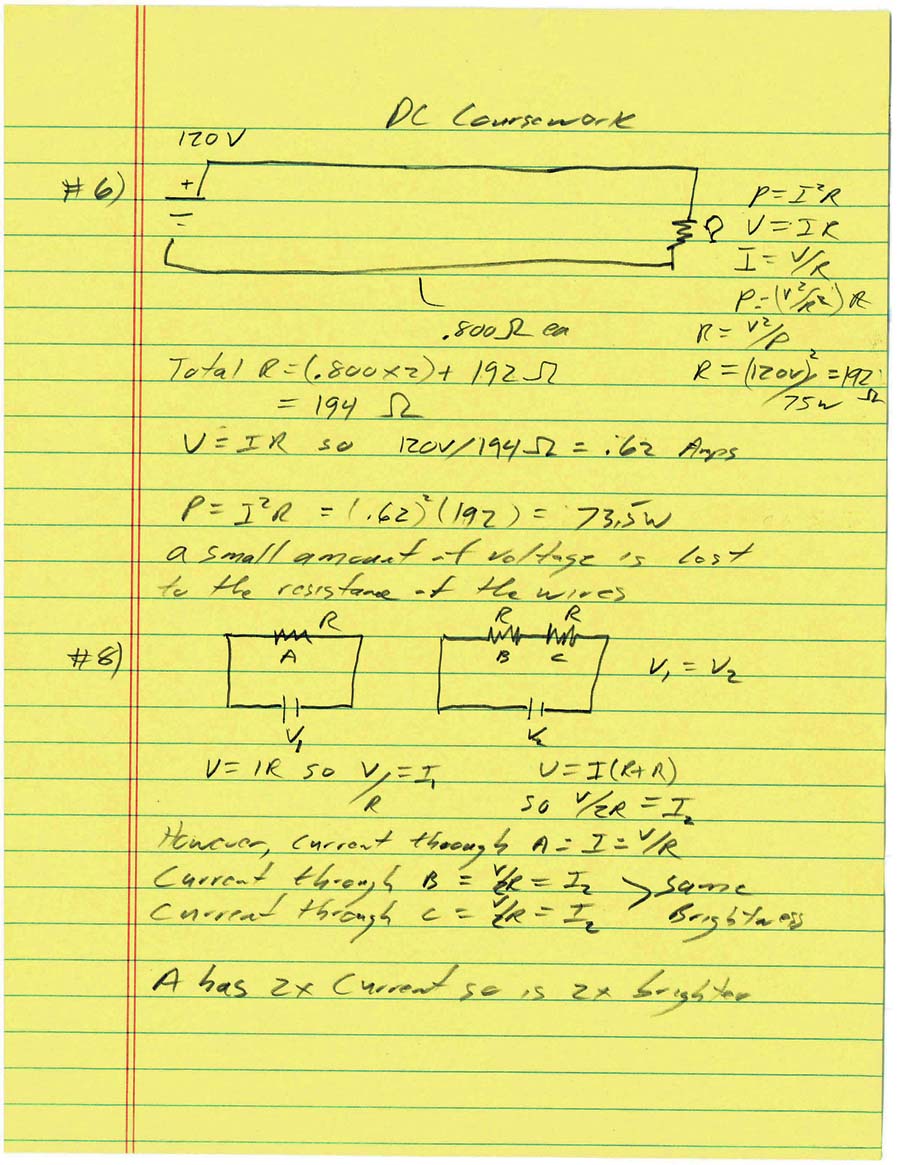 DC Coursework
120V
#6)
+
P = I²R
V = IR
I = V/R
P = (V²/R²) R
.800Ω ea
R = V²/P
Total R = (.800 x 2) + 192 Ω
R = (120V)²/75w = 192 Ω
= 194 Ω
V = IR so 120V/194Ω = .62 Amps
P = I²R = (.62)²(192) = 73.5w
a small amount of voltage is lost
to the resistance of the wires
#8)
R
A
V₁
R R
B C
V₂
V₁ = V₂
V = IR so V/R = I₁
V = I(R+R)
so V/2R = I₂
However, current through A = I = V/R
Current through B = V/2R = I₂ > same
Current through C = V/2R = I₂ Brightness
A has 2x Current so is 2x brighter